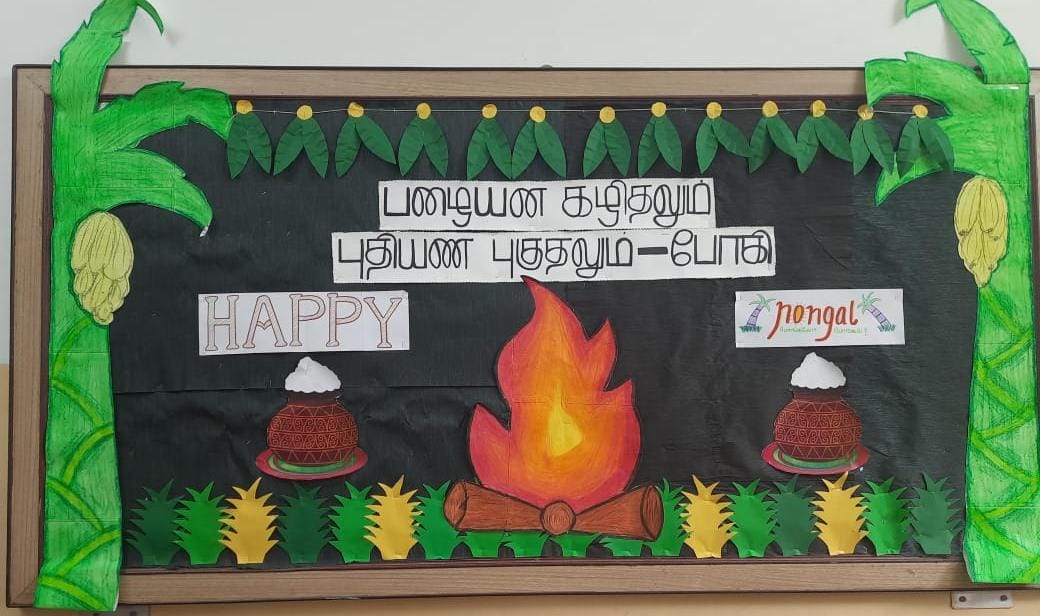 பழையன கழிதலும்
புதியண புகுதலும் - போகி
HAPPY
pongal